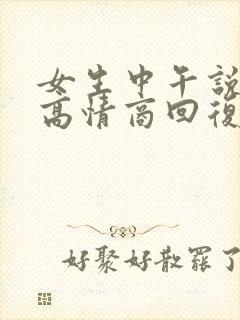 女生中午說
高情商回復
好聚好散罷了